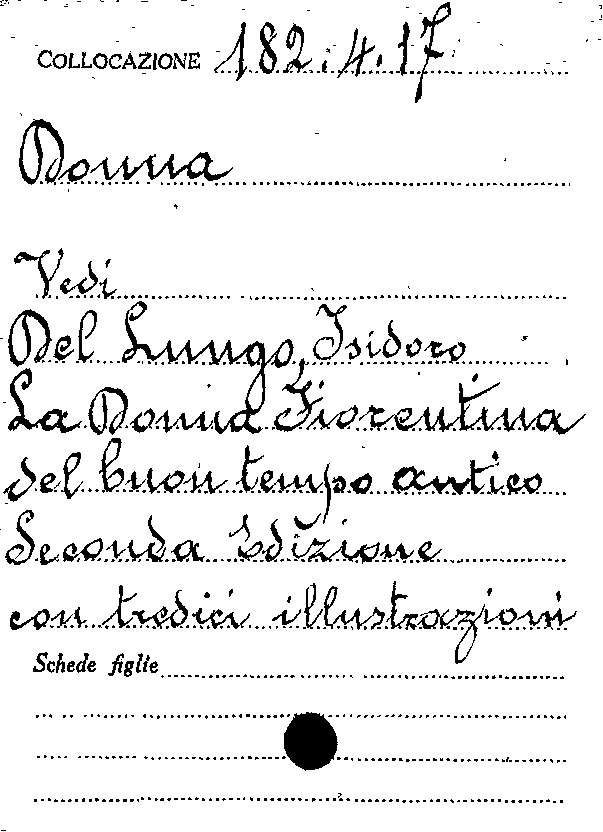 COLLOCAZIONE 182.4.17
Donna
Vedi
Del Lungo, Isidoro
La Donna Fiorentina
del buon tempo antico
Seconda Edizione
con tredici illustrazioni
Schede figlie